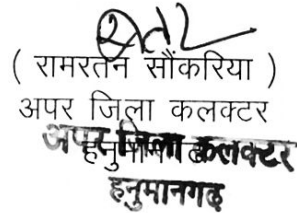 ( रामरतन सौंकरिया )
अपर जिला कलक्टर
हनुमानगढ
अपर जिला कलक्टर
हनुमानगढ़